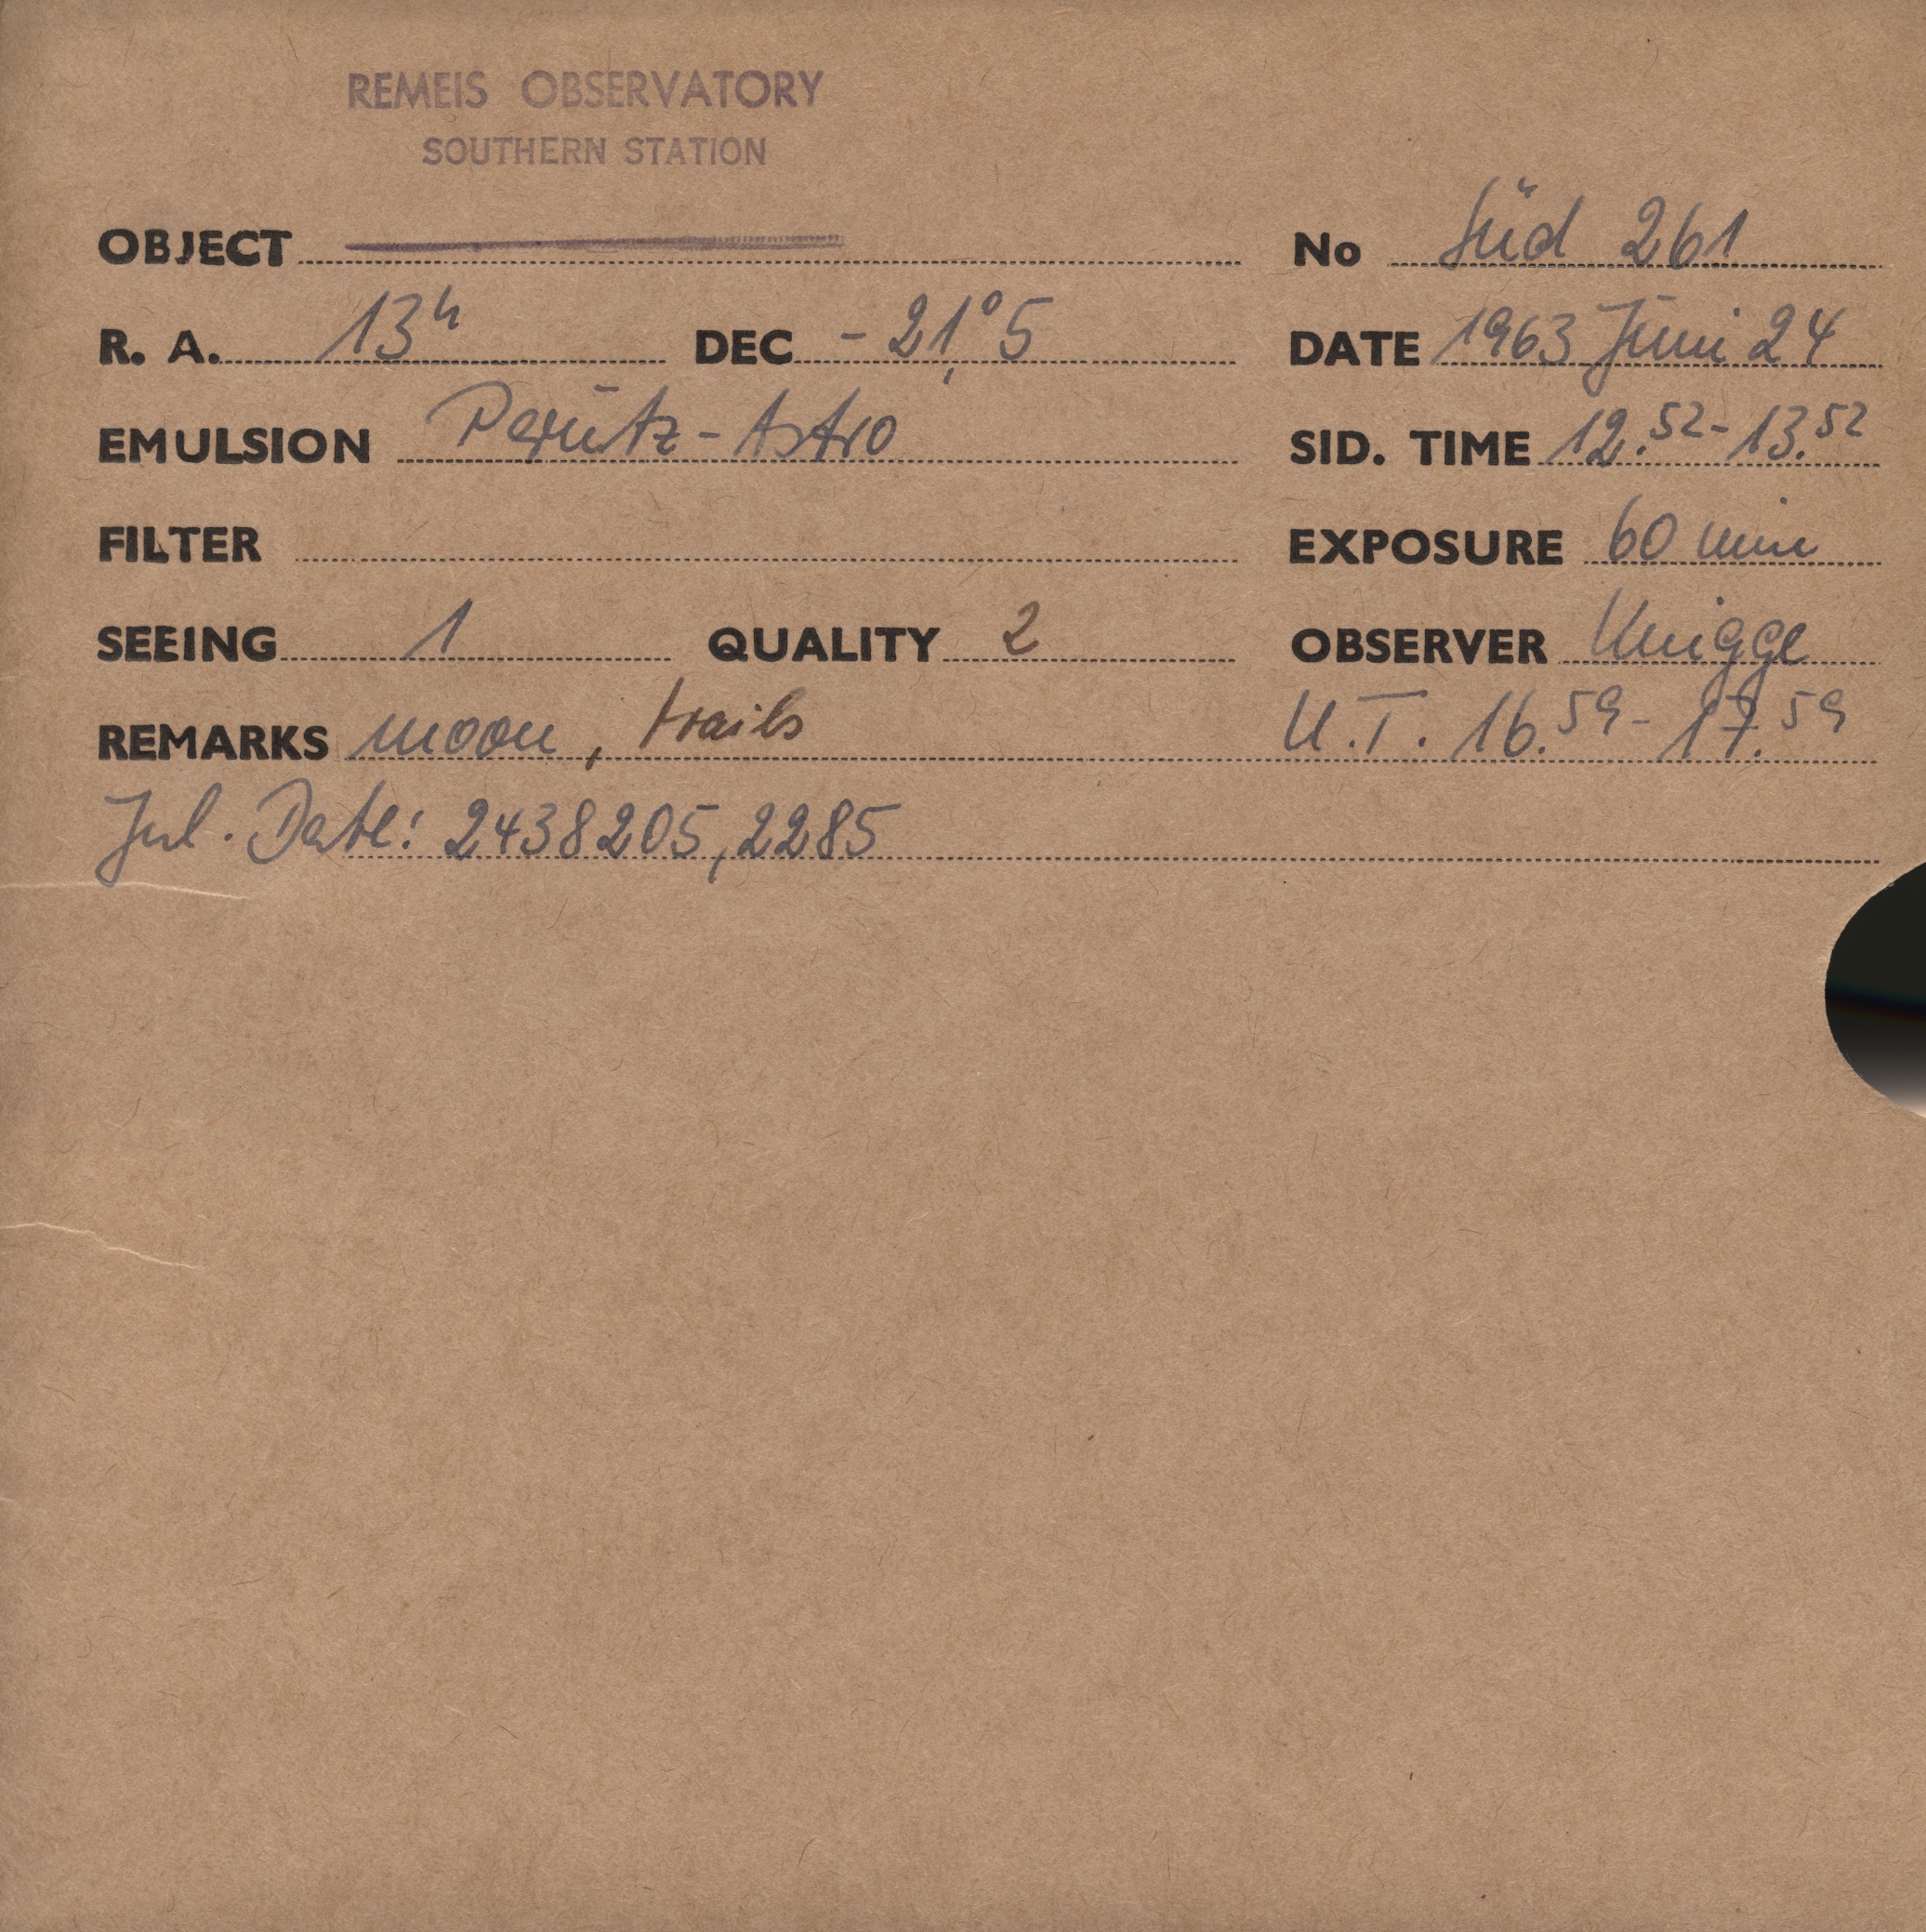 REMEIS OBSERVATORY
SOUTHERN STATION
OBJECT No Süd 261
R. A. 13h DEC -21°,5 DATE 1963 Juni 24
EMULSION Perutz-Astro SID. TIME 12.52-13.52
FILTER EXPOSURE 60 min
SEEING 1 QUALITY 2 OBSERVER Knigge
REMARKS moon, trails U.T. 16.59-17.59
Jul. Date: 2438205,2285